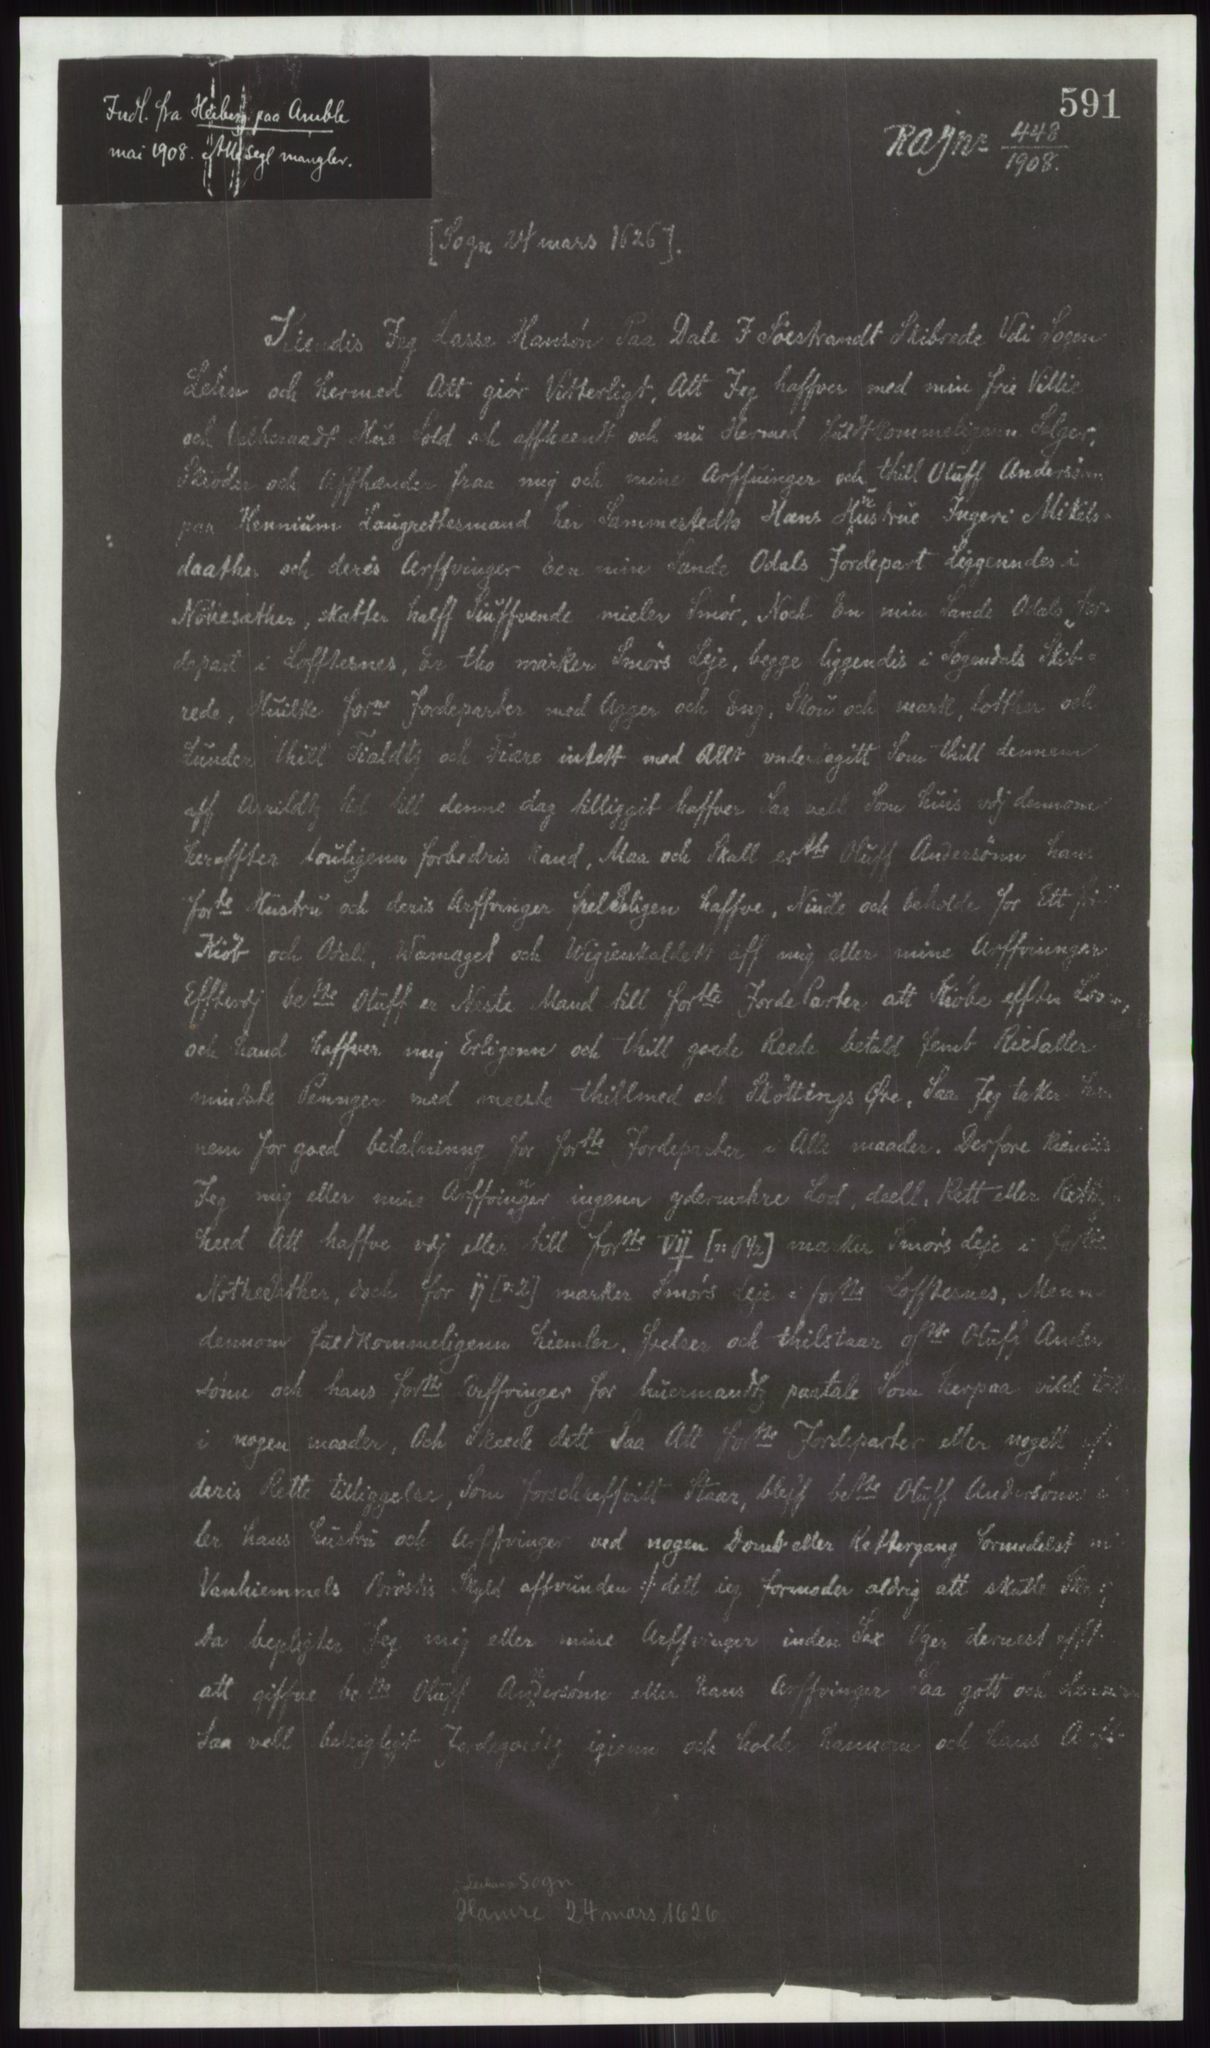 591
Indl. fra Heiberg paa Amble
mai 1908. Alle segl mangler.
RAjnr 448/1908.
[Sogn 24 mars 1626].
Kiendis Jeg Lasse Hansøn Paa Dale J Søestrandt Skibrede Vdi Sogen
Lehn och hermed Att giør Vitterligt, Att Jeg haffver med min frie Villie
och Velberaadt Hue Sold och affhendt och nu Hermed fuldtkommeligenn Selger,
Skiøder och Affhender fraa mig och mine Arffuinger och thill Oluff Andersønn
paa Hennium Laugrettesmand her Sammestedts Hans Hustrue Ingeri Mikils-
daather och deris Arffvinger Een min Sande Odals Jordepart Liggenndes i
Nøttesæther, skatter halff Siuffvende mieler Smør, Noch En min Sande Odals Jor-
depart i Lofftesnes, Er tho marker Smørs Leje, begge liggendis i Sogendals Skib-
rede, Huilke forne Jordeparter med Agger och Eng, Skou och mark, lotther och
Lunder thill Fialdtz och Fiære intett med Allt vndertagitt Som thill dennem
aff Arrildtz tid till denne dag tilliggit haffver Saa vell Som huis vdj dennom
hereffter louligenn forbedris kand, Maa och Skall erte Oluff Andersønn hans
forte Hustru och deris Arffvinger frelseligen haffve, Niude och beholde for Ett frit
Kiøb och Odall, Wamaget och Wigienkaldett aff mig eller mine Arffvinnger
Effterdj bete Oluff er Neste Mand till forte Jorde Parter att Kiøbe effter Lov-,
och hand haffver mig Erligenn och thill goede Reede betald femb Rixdaller
mindste Pennger med meeste thillmed och Skøttings Øre, Saa Jeg taker ha-
nem for goed betalninng for forte Jordeparter i Alle maader. Derfore kiendis
Jeg mig eller mine Arffvinger ingenn ydermehre Lod, deell, Rett eller Rettig-
heed Att haffve vdj eller till forte Vij [: 6½] marker Smørs Leje i forte
Nøttesæther, och for ij [: 2] marker Smørs Leje i forte Lofftesnes, Menn
dennom fuldkommeligenn hiemler, frelser och thilstaar ofte Oluff Ander
sønn och hans forte Arffvinger for huermandtz paatale Som herpaa vilde
i nogen maader, Och Skeede dett Saa Att forte Jordeparter eller nogett aff
deris Rette tilliggelse, Som forschreffvitt Staar, bleff bete Oluff Andersønn el-
ler hans hustru och Arffvinger ved nogen Domb eller Rettergang formedelst min
Vanhiemmels Brøstis Skyld affvunden :/ dett ieg formoder aldrig att skulle Ske :/
Da bepligter Jeg mig eller mine Arffvinger inden Sex Vger dernest effter
att giffve bete Oluff Andersønn eller hans Arffvinger Saa gott och
Saa vell beleigligt Jordegodtz igienn och holde hannom och hans Arff-
Leikanger Sogn
Hamre 24 mars 1626